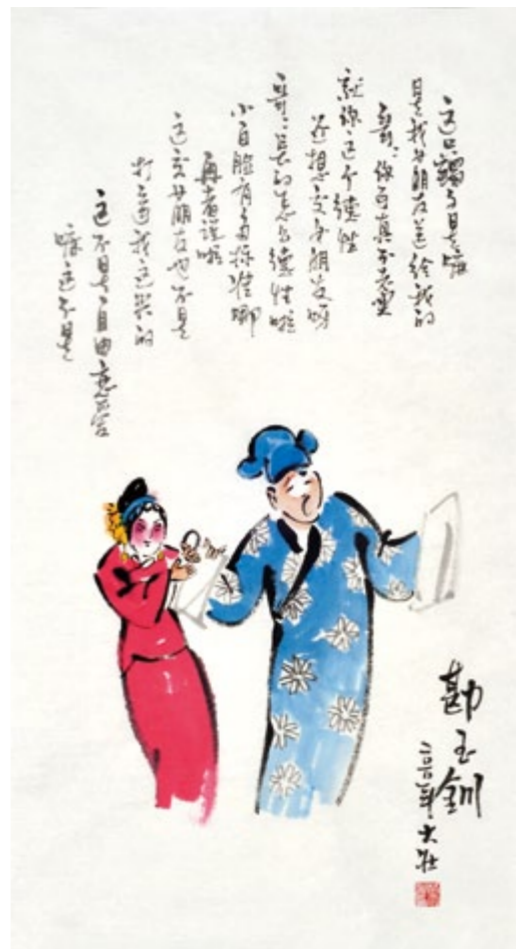 这只镯子是
是我女朋友送给我的
哥哥你可真不老实
就你这个德性
还想交女朋友呀
哥哥长的怎么德性啦
小白脸有多标准哪
再者说啦
这交女朋友也不是
打 我这兴的
这不是自由恋爱
嘛这不是
勘玉钏
年大壮